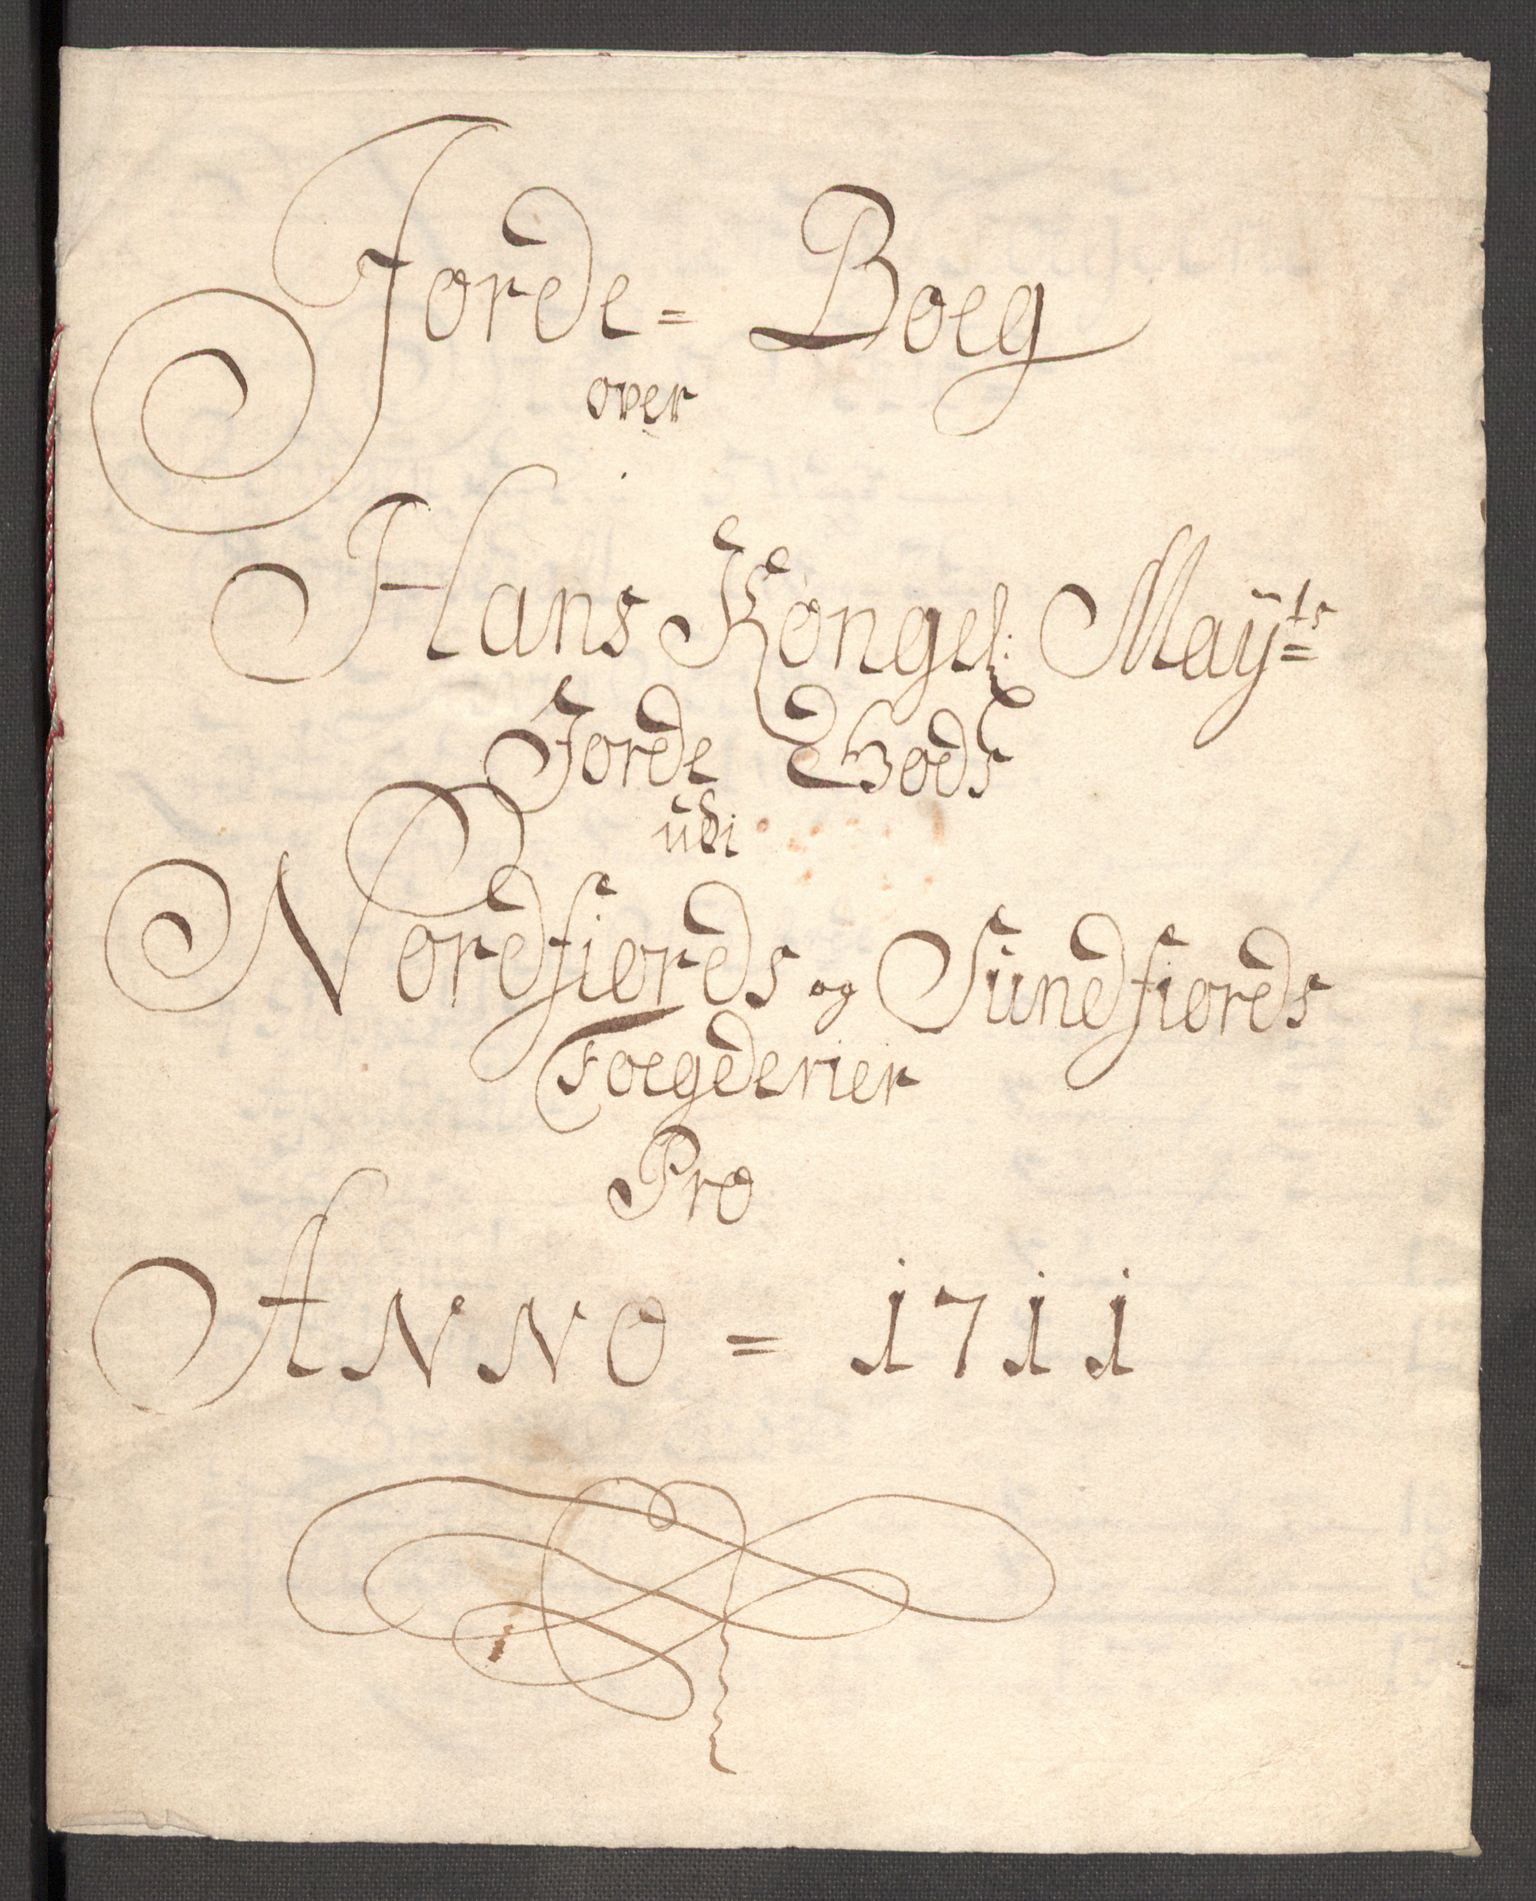 Jorde= Boeg
over
Hans Kongel: Maÿ=ts
Jorde Gods
udi
Nordfiords og Sundfiords
Foegderier
Pro
ANNO = 1711